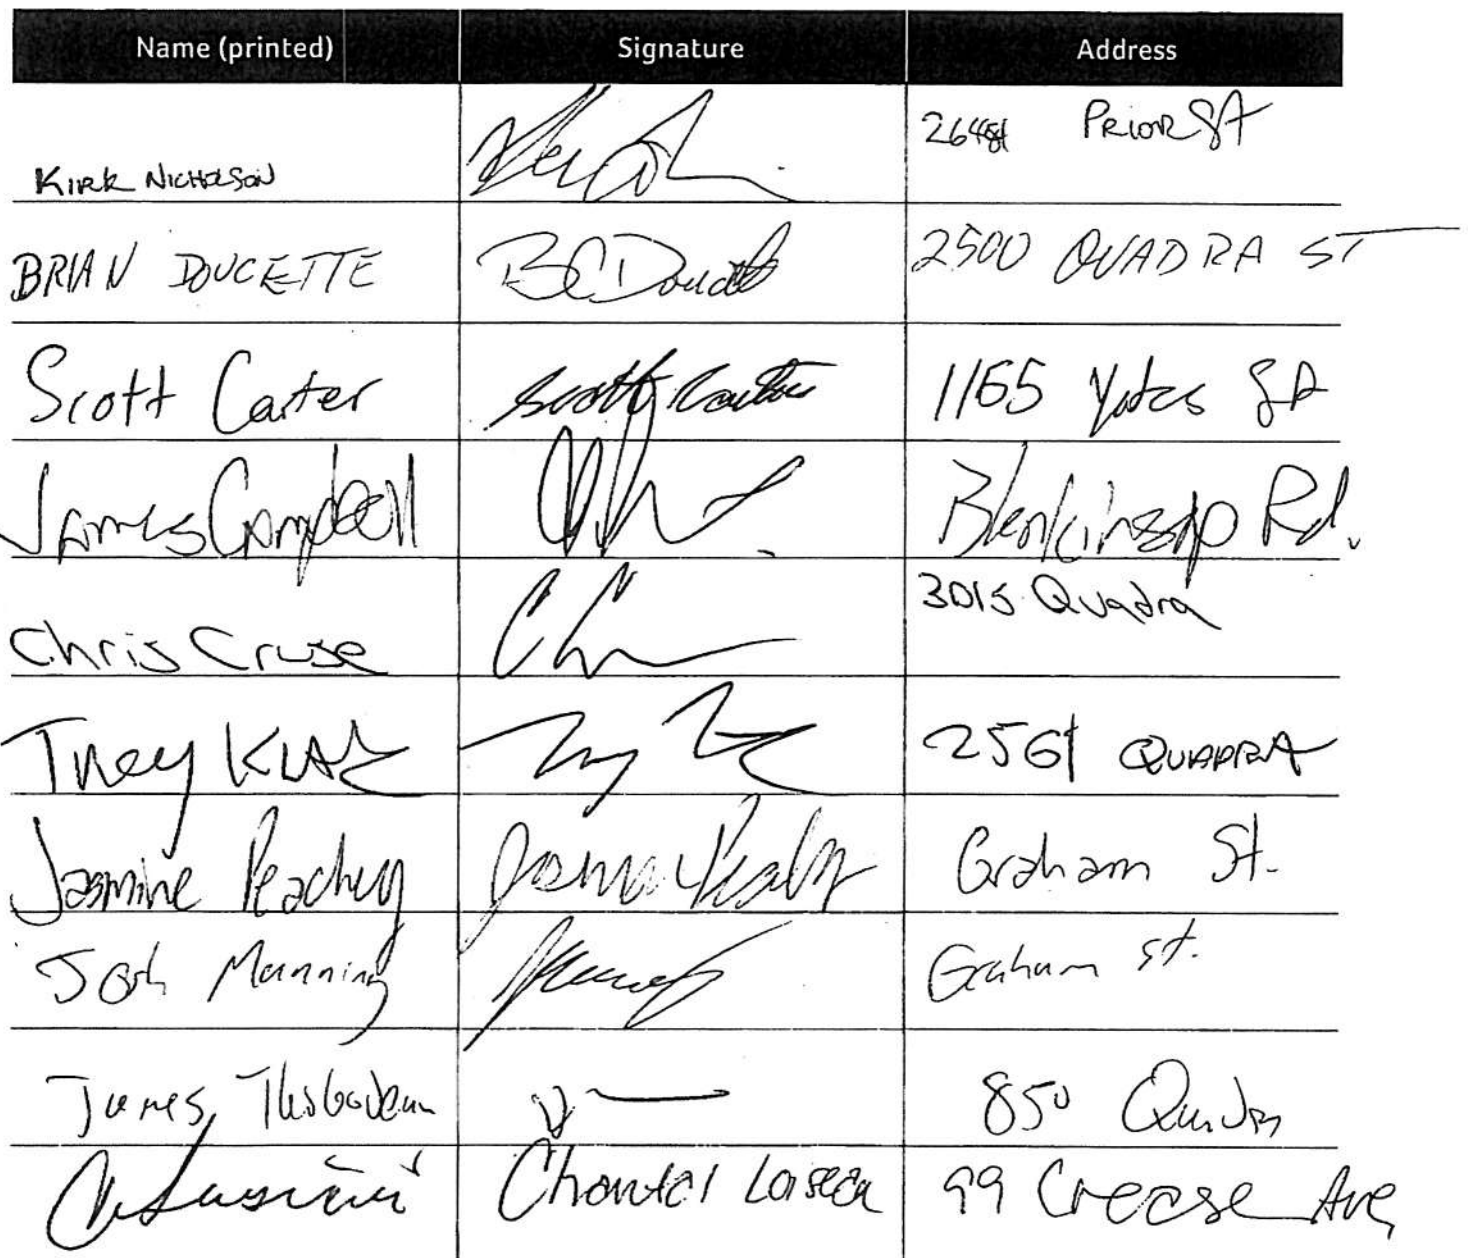 Name (printed) Signature Address
KIRK NICHOLSON PRIOR St
BRIAN DOUCETTE BCDoucette 2500 QUADRA ST
Scott Carter Scott Carter 1165 Yates St
James Campbell Blenkinsop Rd.
Chris Cruse 3015 Quadra
Trey 2561 QUADRA
Jasmine Peachey Graham St.
Josh Manning Graham St.
James Thibodeau 850 Quadra
Chantal 99 Crease Ave